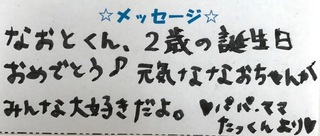 ☆メッセージ☆
なおとくん、2歳の誕生日
おめでとう♪ 元気ななおちゃんが
みんな大好きだよ。♥パパ・ママ
たっくんより♥